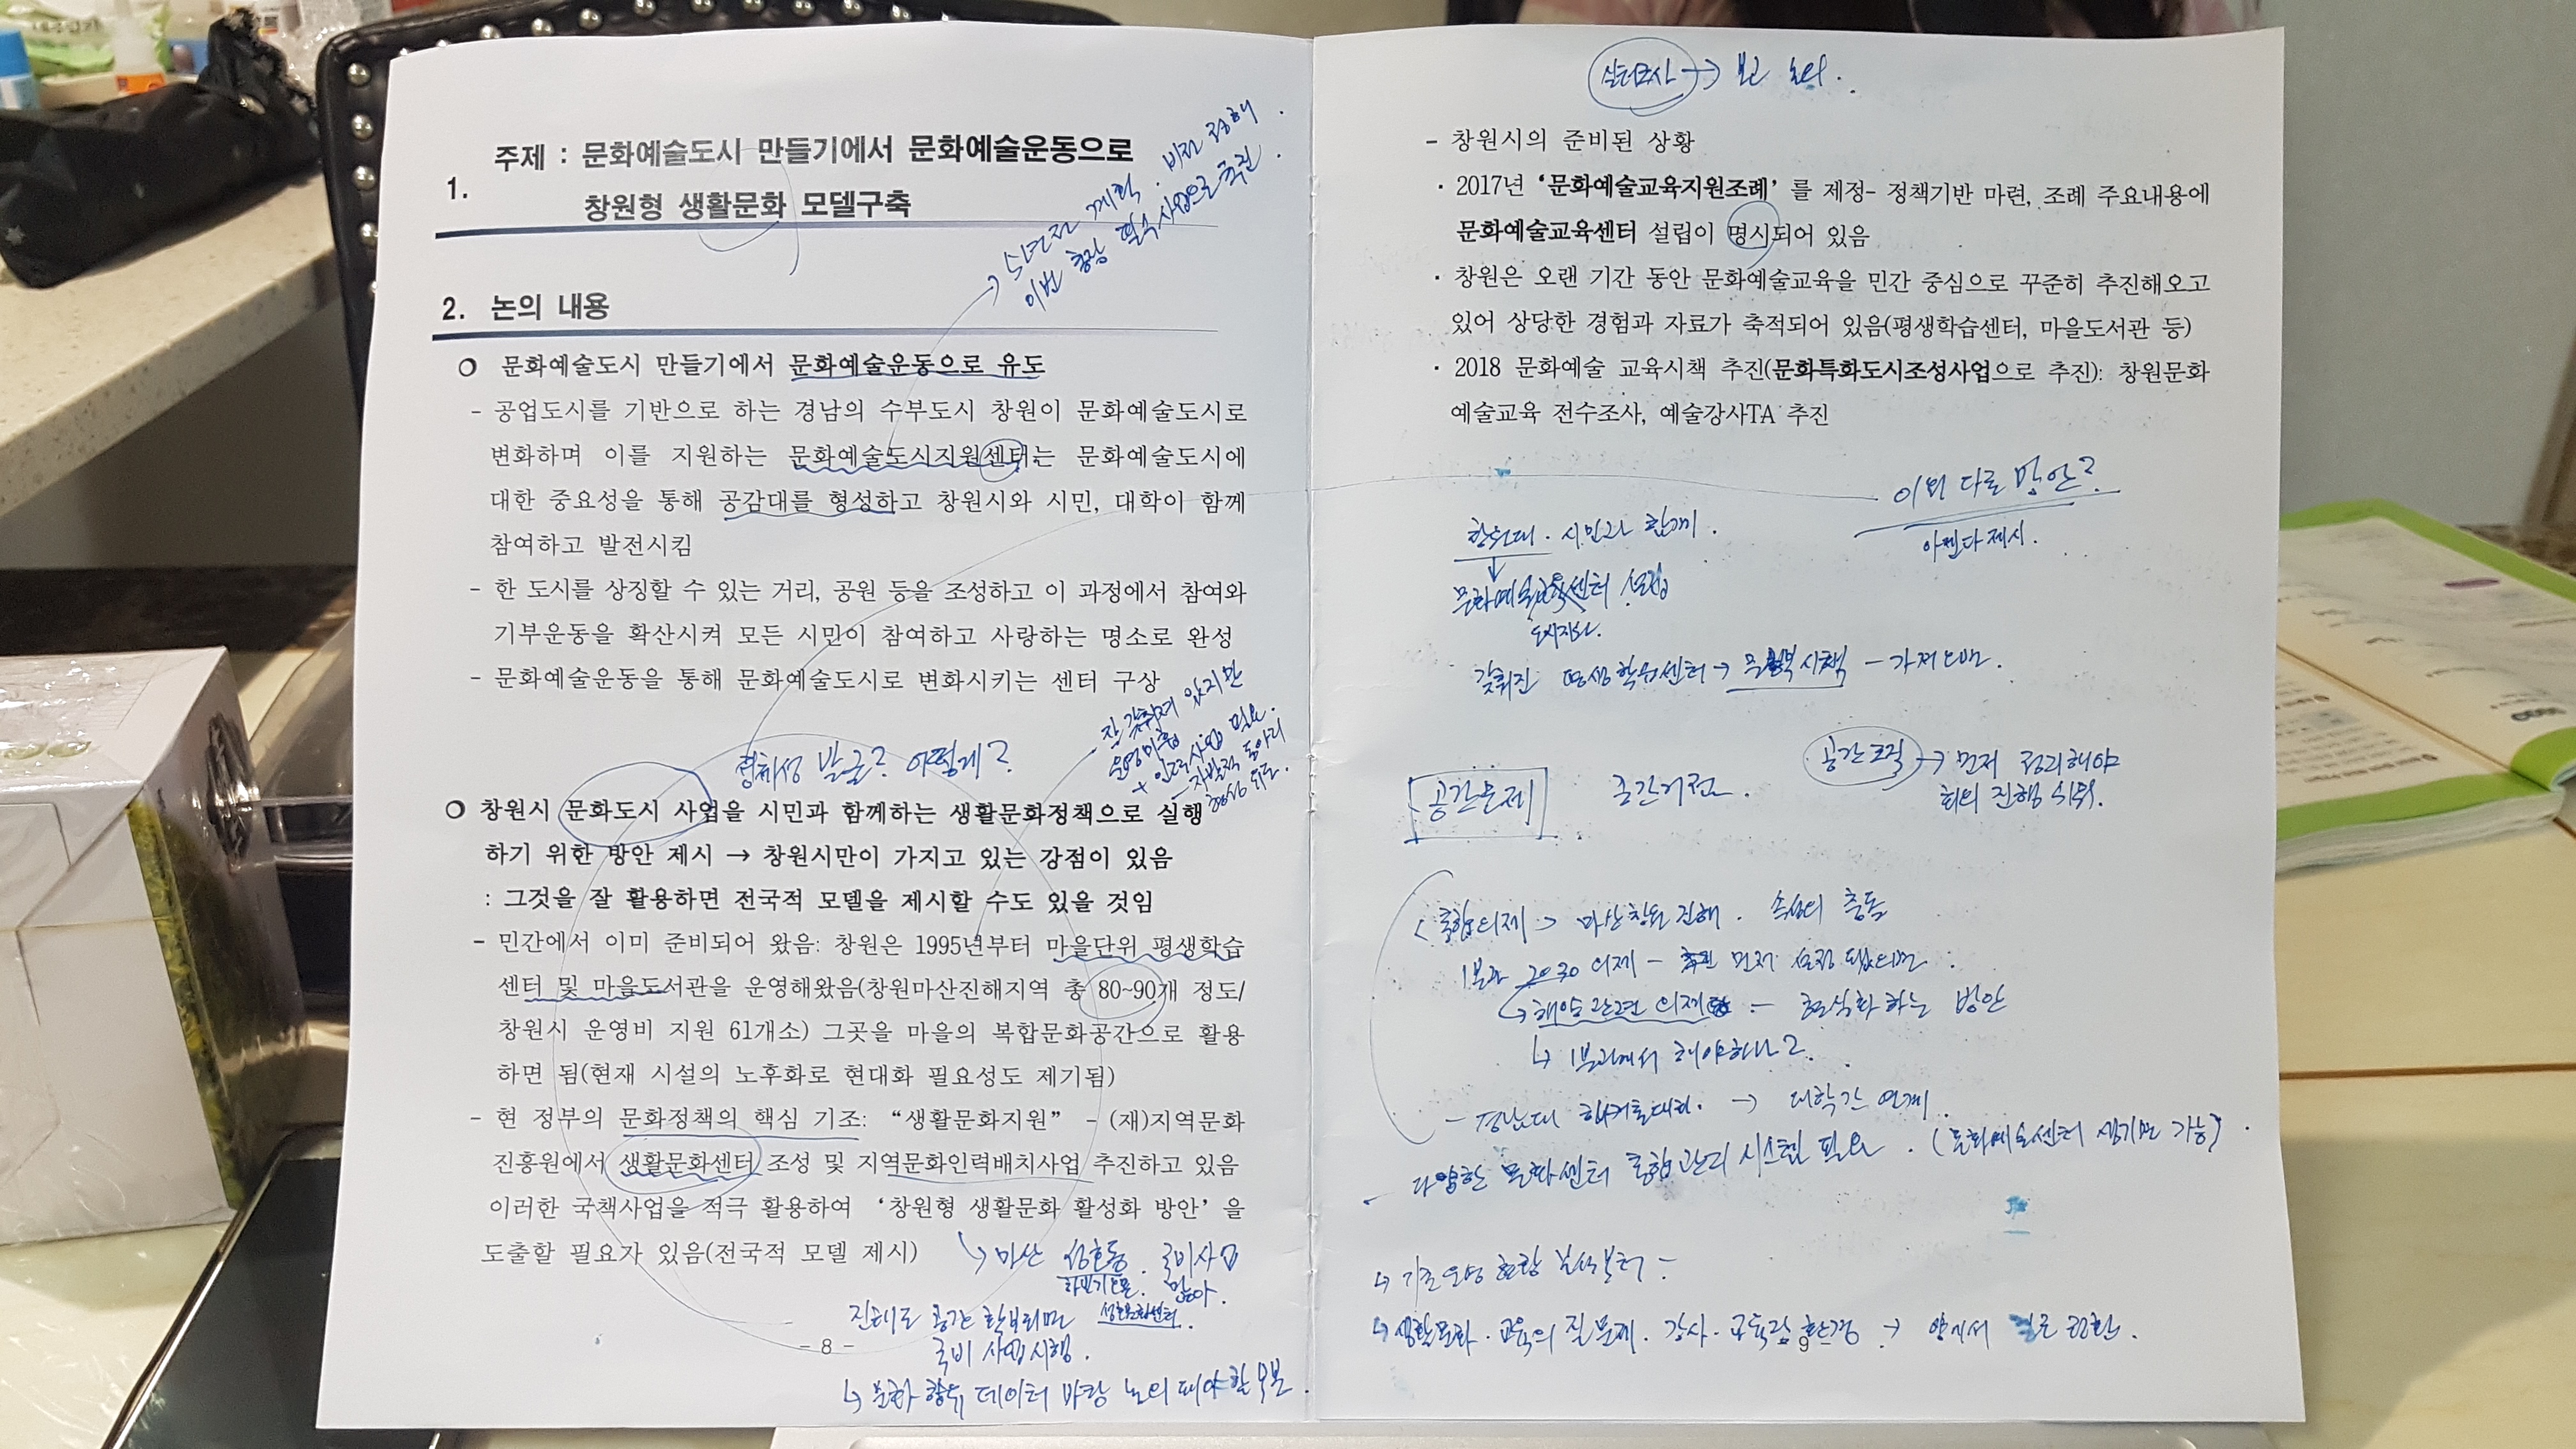 1. 주제 : 문화예술도시 만들기에서 문화예술운동으로
창원형 생활문화 모델구축
5년전 계획. 비전 정해.
이번 총장 필수사업으로 추진.
2. 논의 내용
○ 문화예술도시 만들기에서 문화예술운동으로 유도
- 공업도시를 기반으로 하는 경남의 수부도시 창원이 문화예술도시로
변화하며 이를 지원하는 문화예술도시지원센터는 문화예술도시에
대한 중요성을 통해 공감대를 형성하고 창원시와 시민, 대학이 함께
참여하고 발전시킴
- 한 도시를 상징할 수 있는 거리, 공원 등을 조성하고 이 과정에서 참여와
기부운동을 확산시켜 모든 시민이 참여하고 사랑하는 명소로 완성
- 문화예술운동을 통해 문화예술도시로 변화시키는 센터 구상
정체성 발굴? 어떻게?
잘 갖춰져 있지만
운영미흡
+ 인력사업 필요.
- 자발적 동아리
형성 위주.
○ 창원시 문화도시 사업을 시민과 함께하는 생활문화정책으로 실행
하기 위한 방안 제시 → 창원시만이 가지고 있는 강점이 있음
: 그것을 잘 활용하면 전국적 모델을 제시할 수도 있을 것임
- 민간에서 이미 준비되어 왔음: 창원은 1995년부터 마을단위 평생학습
센터 및 마을도서관을 운영해왔음(창원마산진해지역 총 80~90개 정도/
창원시 운영비 지원 61개소) 그곳을 마을의 복합문화공간으로 활용
하면 됨(현재 시설의 노후화로 현대화 필요성도 제기됨)
- 현 정부의 문화정책의 핵심 기조: “생활문화지원” - (재)지역문화
진흥원에서 생활문화센터 조성 및 지역문화인력배치사업 추진하고 있음
이러한 국책사업을 적극 활용하여 ‘창원형 생활문화 활성화 방안’을
도출할 필요가 있음(전국적 모델 제시)
↳ 마산 성호동. 국비사업
많아.
진해도 공간 확보되면
국비 사업시행.
- 8 -
↳ 문화 향유 데이터 바탕 논의 돼야 할 부분.
실태조사 → 보고 논의.
- 창원시의 준비된 상황
· 2017년 ‘문화예술교육지원조례’ 를 제정- 정책기반 마련, 조례 주요내용에
문화예술교육센터 설립이 명시되어 있음
· 창원은 오랜 기간 동안 문화예술교육을 민간 중심으로 꾸준히 추진해오고
있어 상당한 경험과 자료가 축적되어 있음(평생학습센터, 마을도서관 등)
· 2018 문화예술 교육시책 추진(문화특화도시조성사업으로 추진): 창원문화
예술교육 전수조사, 예술강사TA 추진
방안?
아젠다 제시.
창원대. 시민과 함께.
↓
문화예술교육센터 설립
도시지원.
갖춰진 평생학습센터 →
공간문제
공간거점.
공간조직 → 먼저 정리해야
회의 진행 쉬워.
<통합의제> 마산 창원 진해. 속성의 충돌
1분과 2030 의제 - 먼저 설정 됐으면.
↳ 해양관련 의제 - 형식화하는 방안
↳ 1분과에서 해야하나?
- 경남대 → 대학간 연계.
- 다양한 문화센터 통합관리 시스템 필요. (문화예술센터 생기면 가능).
↳ 기존 운영 현황 분석부터 -
↳ 생활문화. 교육의 질 문제. 강사. 교육장 환경 → 양에서 질로 전환.
9 -